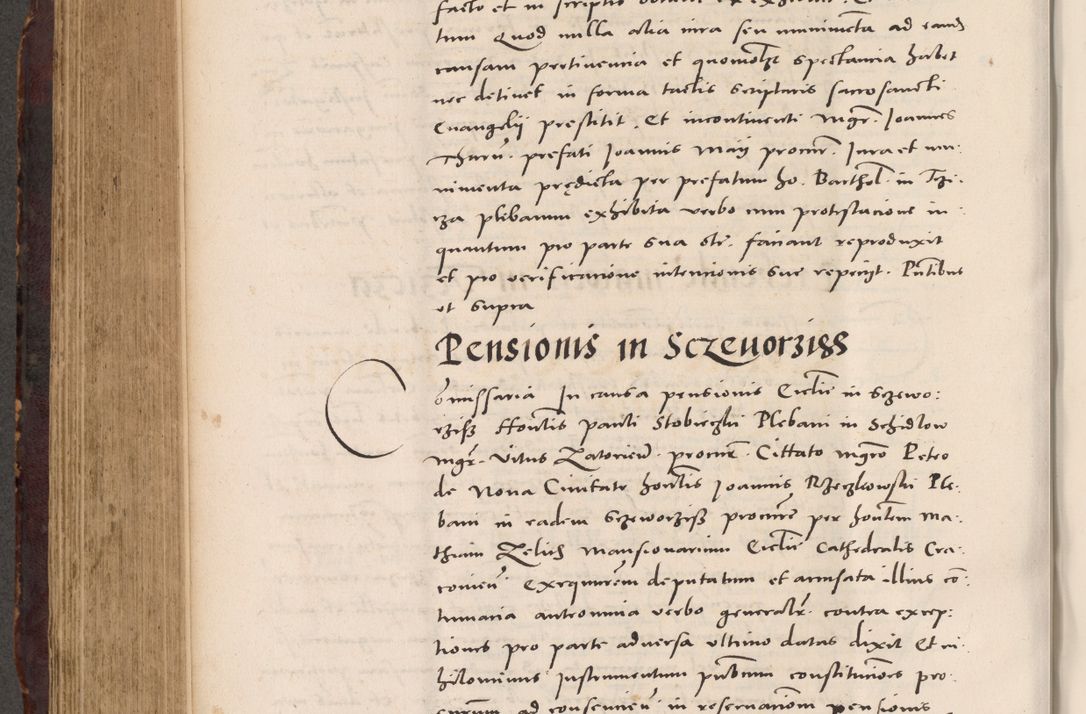 facto et in scriptio
tum Quod nulla alia iura seu munimeta ad eand
causam pertinencia et quomolᷣ spectancia habet
nec detinet in forma tactis scripturis sacrosancti
Euangelij prestitit. Et incontinenti Mgr. Joannes
prefati Joannis Maij procur. Iura et mu:
nimenta prędicta per prefatum ho. Barthol. in Tże:
rza plebanum exhibita verbo cum protestacione in
quantum pro parte sua etc. faciant reproduxit
et pro verificacione intencionis sue repetijt. Pntibus
vt supra
Pensionis in Sczeuorziss
Comissaria In causa pensionis Ecclie in Sczewo:
rziss Honlis pauli Stobieczki Plebani in Schidlow
mgr. Vitus Zatorien. procur. Cittato mgro Petro
de Noua Ciuitate honlis Joannis Rzeczkowski Ple:
bani in eadem Sczeworziss procure per honlem Ma:
thiam Zelich Mansionarium Ecclie Cathedralis Cra:
couien. Exequutem deputatum et accusata illius co:
tumacia antronnia verbo generalr. contra excep:
tiones pro parte aduersa vltimo datas dixit Et ni:
hilominus Instrumentum pubcum constitucois pro:
curum ad consencien. in reseruacionem pensionis